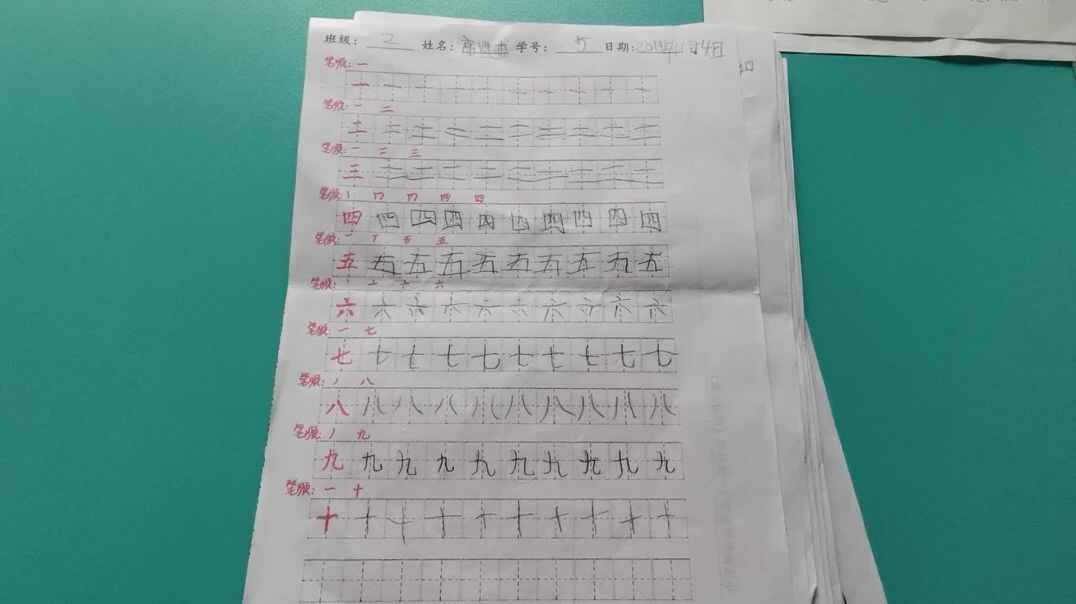 班级： 2 姓名： 学号： 5 日期：
笔顺：一
一 一 一 一 一 一 一 一 一 一
笔顺：一 二
二 二 二 二 二 二 二 二 二 二
笔顺：一 二 三
三 三 三 三 三 三 三 三 三 三
笔顺：丨 冂 四
四 四 四 四 四 四 四 四 四 四
笔顺：一 丅 五
五 五 五 五 五 五 五 五 五 五
笔顺：丶 亠 六
六 六 六 六 六 六 六 六 六 六
笔顺：一 七
七 七 七 七 七 七 七 七 七 七
笔顺：丿 八
八 八 八 八 八 八 八 八 八 八
笔顺：丿 九
九 九 九 九 九 九 九 九 九 九
笔顺：一 十
十 十 十 十 十 十 十 十 十 十